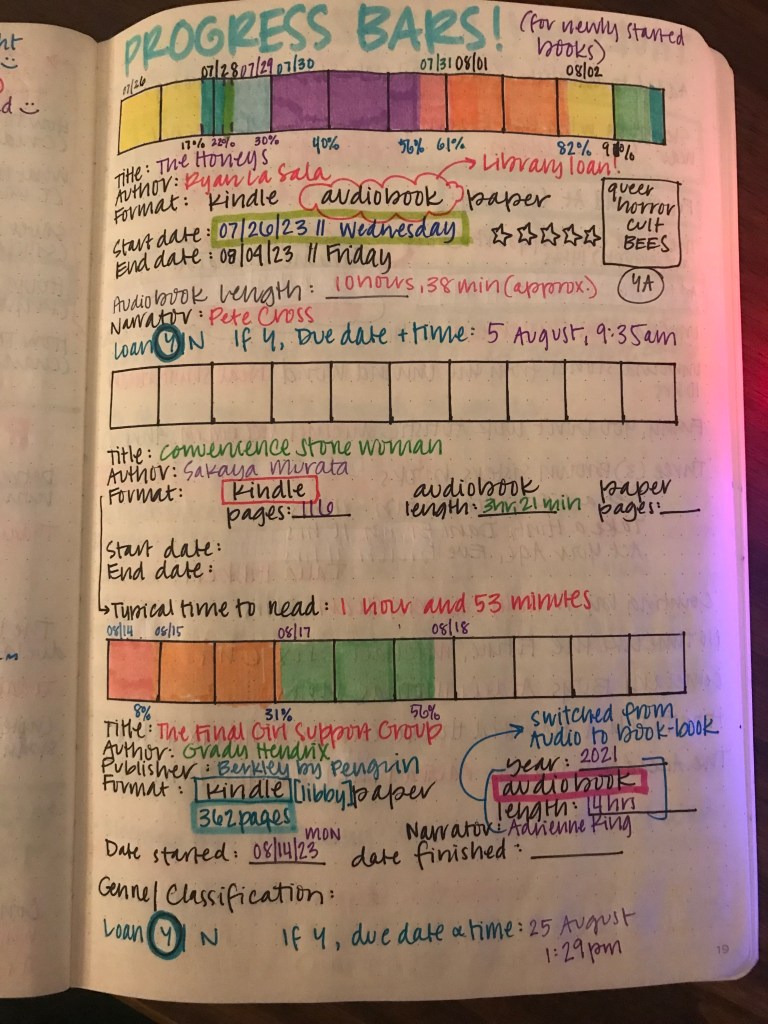 ht
d
PROGRESS BARS! (for newly started books)
07/26 07/28 07/29 07/30 07/31 08/01 08/02
17% 22% 30% 40% 56% 61% 82%
Title: The Honeys
Author: Ryan La Sala → Library loan!
Format: Kindle audiobook paper
Start date: 07/26/23 || Wednesday
End date: 08/04/23 || Friday
queer
horror
cult
BEES
YA
Audiobook Length: 10 hours, 38 min (approx.)
Narrator: Pete Cross
Loan Y N If Y, Due date + time: 5 August, 9:35am
Title: Convenience Store Woman
Author: Sakaya Murata
Format: Kindle audiobook paper
pages: 116 length: 3hr 21 min pages:
Start date:
End date:
→ Typical time to read: 1 hour and 53 minutes
08/14 08/15 08/17 08/18
8% 31% 56%
Title: The Final Girl Support Group
Author: Grady Hendrix
Publisher: Berkley by Penguin
Format: Kindle [libby] paper
362 pages
switched from
Audio to book-book
year: 2021
audiobook
length: 14 hrs
Narrator: Adrienne King
Date started: 08/14/23 MON date finished:
Genre/Classification:
Loan Y N If Y, due date & time: 25 August
1:29pm
19